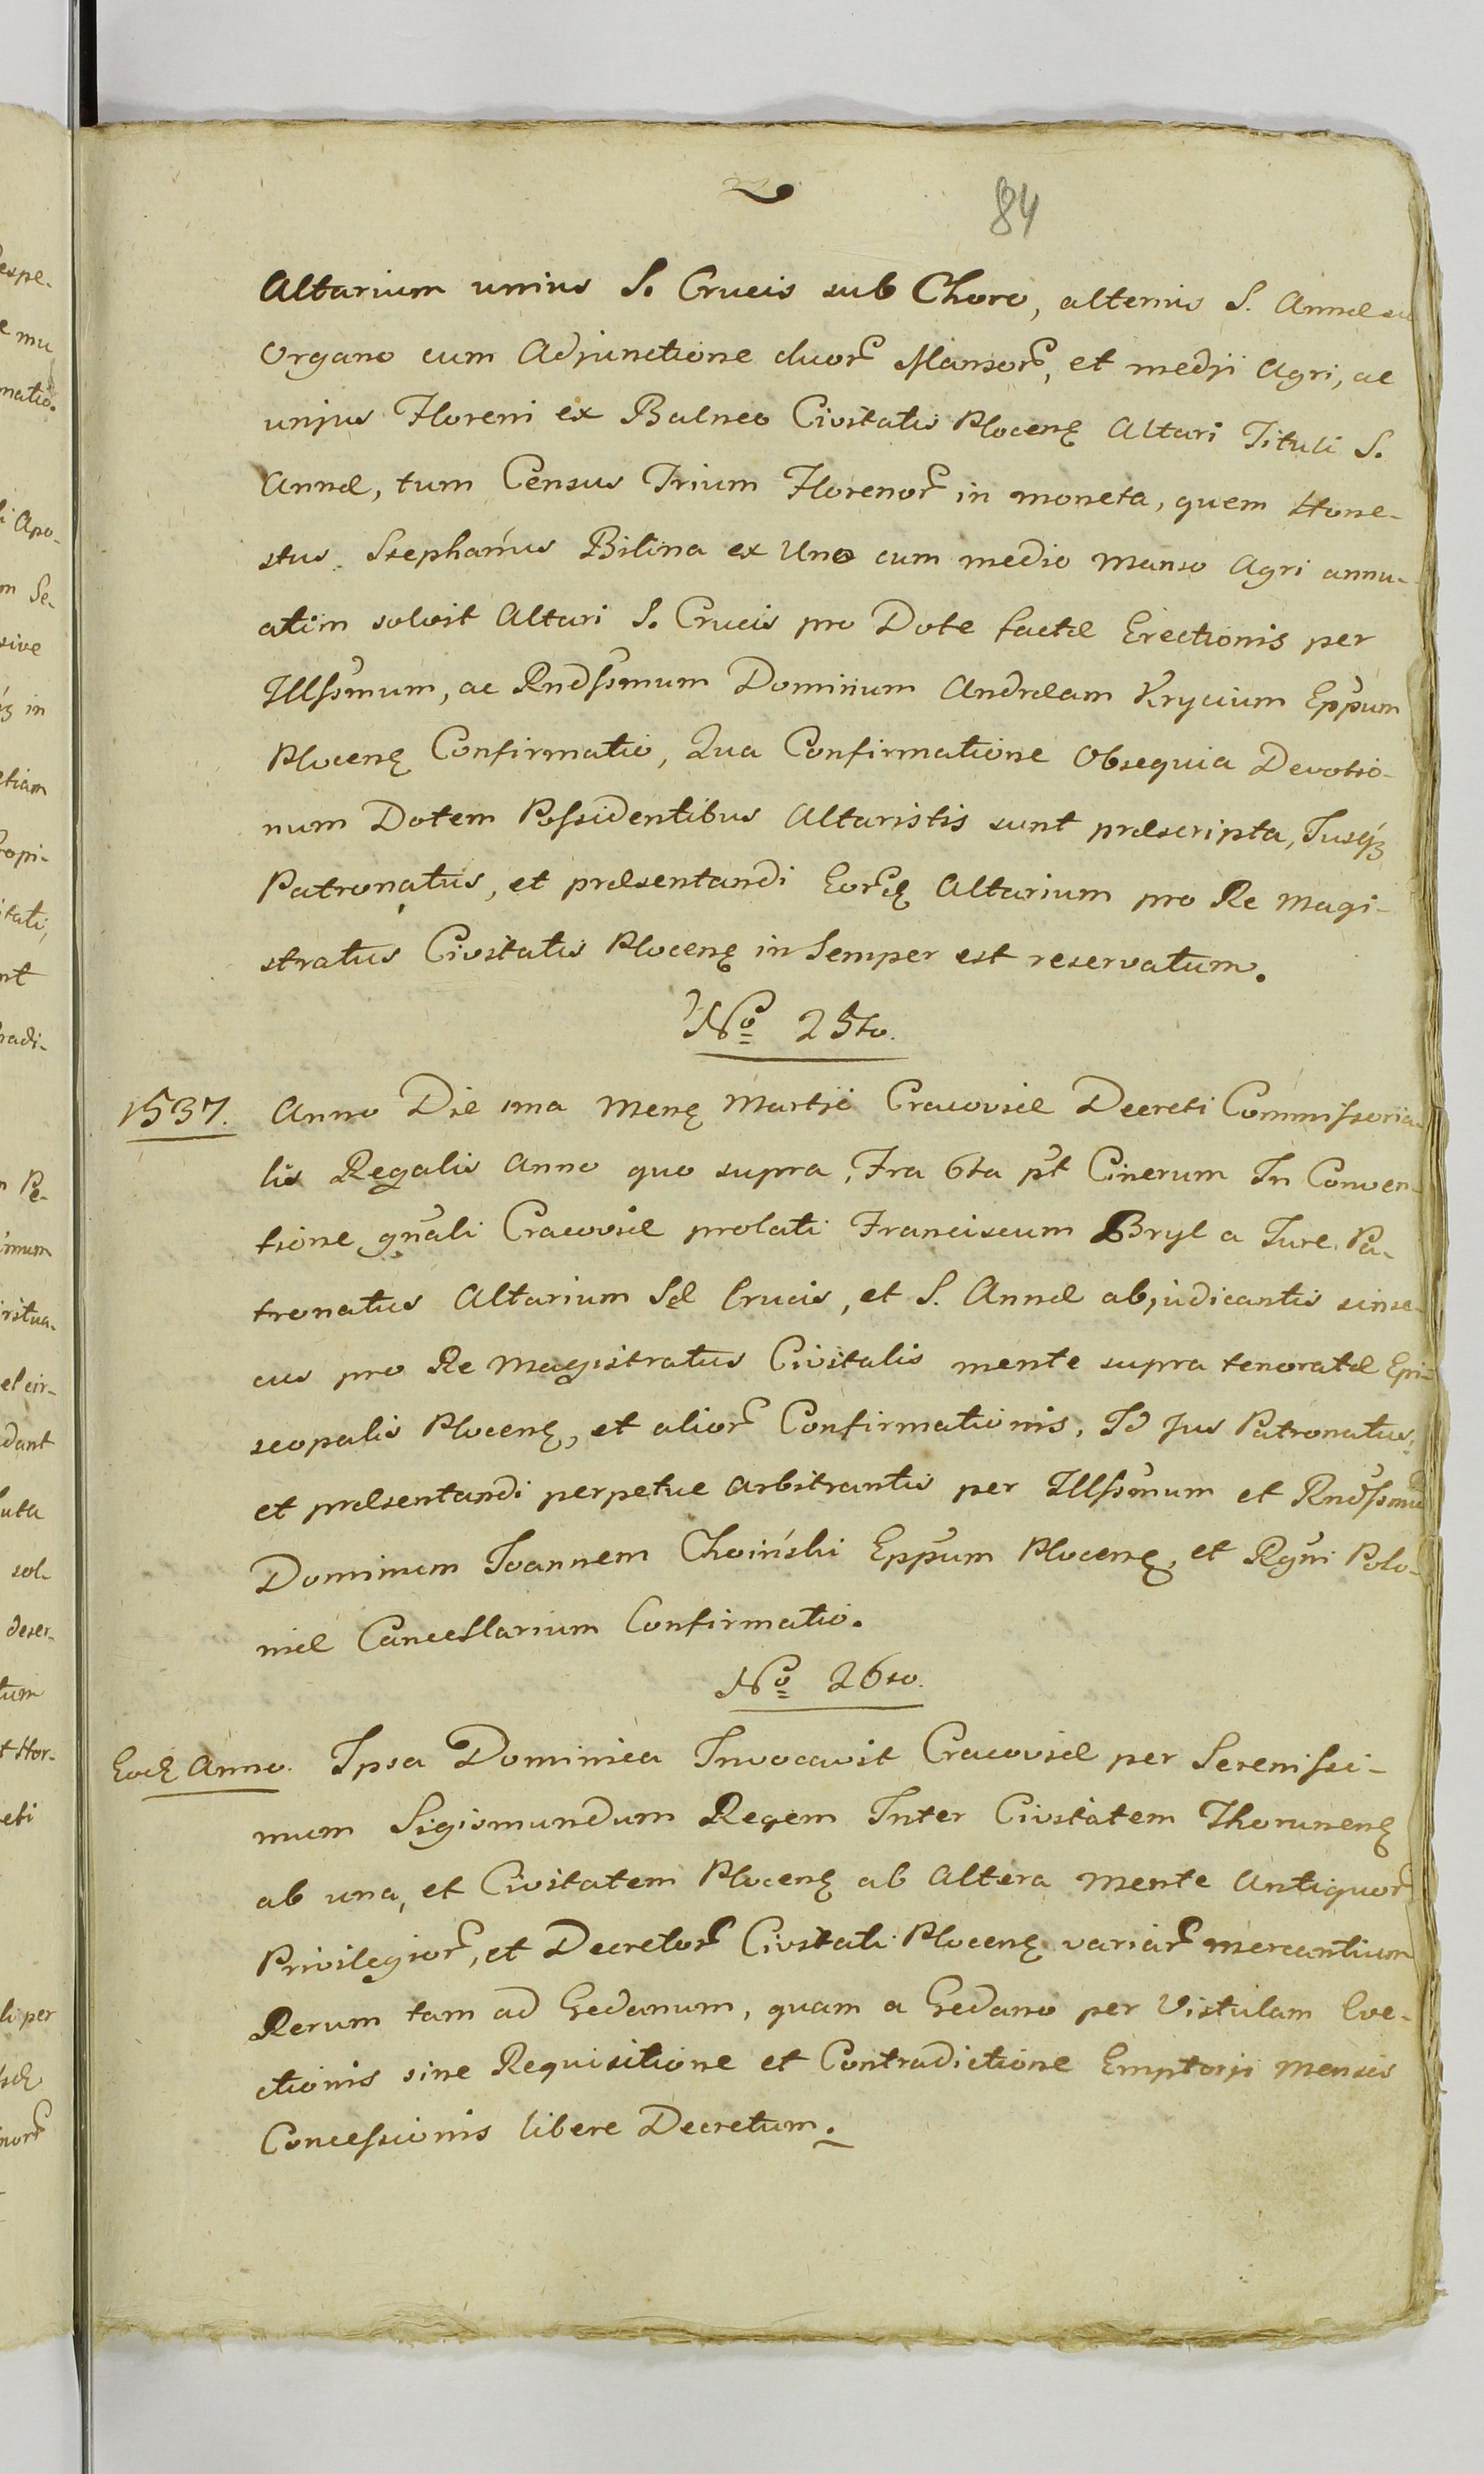 84
Altarium unius S. Crucis sub Choro, alterius S. Annæ su
Organo cum Adjunctione duor. Mansor., et medji Agri, ac
unjus Floreni ex Balneo Civitatis Plocenę Altari Tituli S.
Annæ, tum Census Trium Florenor. in moneta, quem Hone-
stus Stephanus Bilina ex Uno cum medio Manso Agri annu-
atim solvit Altari S. Crucis pro Dote factæ Erectionis per
Illssmum, ac Rndssmum Dominum Andræam Krycium Eppum
Plocenę Confirmatio, Qua Confirmatione Obsequia Devotio-
num Dotem Possidentibus Altaristis sunt præscripta, Jusqz
Patronatus, et præsentandi Eordę Altarium pro Re Magi-
stratus Civitatis Plocenę in Semper est reservatum.
No 25to.
1537. Anno Die 1ma Menę Martji Cracoviæ Decreti Commissoria-
lis Regalis Anno quo supra, Fra 6ta pt Cinerum In Conven-
tione gnali Cracoviæ prolati Franciscum Bryl a Jure Pa-
tronatus Altarium Sæ Crucis, et S. Annæ abjudicantis sinse-
cus pro Re Magistratus Civitalis mente supra tenoratæ Epi-
scopalis Plocenę, et alior. Confirmationis, Id Jus Patronatus,
et præsentandi perpetue arbitrantis per Illssmum et Rndssmu
Dominum Joannem Choiński Eppum Plocenę, et Rgni Polo-
niæ Cancellarium Confirmatio.
No 26to.
Eodę Anno. Ipsa Dominica Invocavit Cracoviæ per Serenissi-
mum Sigismundum Regem Inter Civitatem Thorunenę
ab una, et Civitatem Plocenę ab Altera mente Antiquor.
Privilegior., et Decretor. Civitati Plocenę variar. mercantium
Rerum tam ad Gedanum, quam a Gedano per Vistulam Eve-
ctionis sine Requisitione et Contradictione Emptorji mensis
Concessionis libere Decretum.